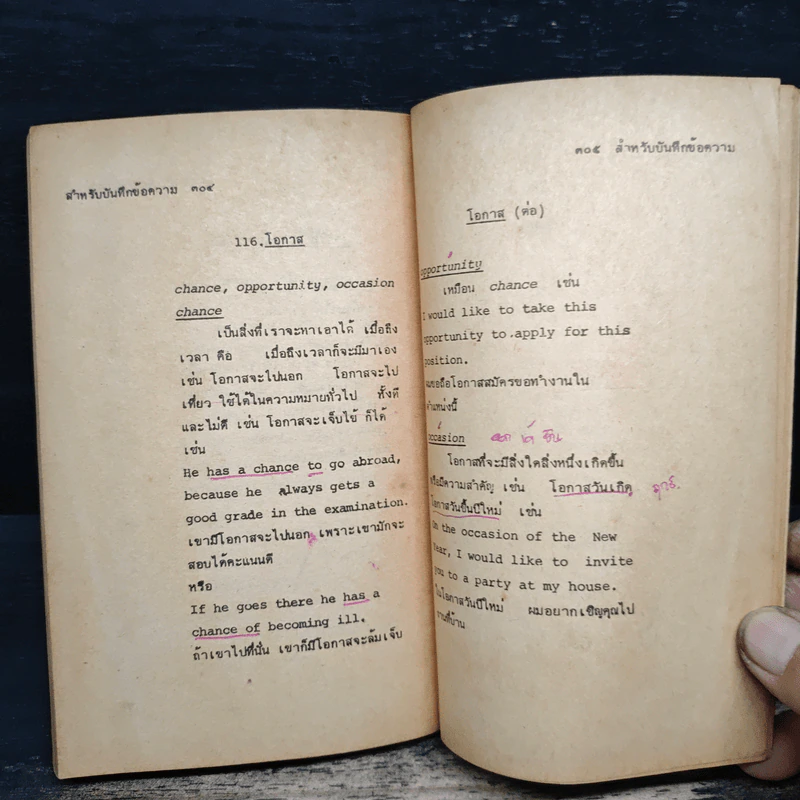 สำหรับบันทึกข้อความ ๓๐๔
116.โอกาส
chance, opportunity, occasion
chance
เป็นสิ่งที่เราจะหาเอาได้ เมื่อถึง
เวลา คือ เมื่อถึงเวลาก็จะมีมาเอง
เช่น โอกาสจะไปนอก โอกาสจะไป
เที่ยว ใช้ได้ในความหมายทั่วไป ทั้งดี
และไม่ดี เช่น โอกาสจะเจ็บไข้ ก็ได้
เช่น
He has a chance to go abroad,
because he always gets a
good grade in the examination.
เขามีโอกาสจะไปนอก เพราะเขามักจะ
สอบได้คะแนนดี
หรือ
If he goes there he has a
chance of becoming ill.
ถ้าเขาไปที่นั่น เขาก็มีโอกาสจะล้มเจ็บ
๓๐๕ สำหรับบันทึกข้อความ
โอกาส (ต่อ)
opportunity
เหมือน chance เช่น
I would like to take this
opportunity to apply for this
position.
ผมขอถือโอกาสสมัครขอทำงานใน
ตำแหน่งนี้
occasion
โอกาสที่จะมีสิ่งใดสิ่งหนึ่งเกิดขึ้น
หรือมีความสำคัญ เช่น โอกาสวันเกิด
โอกาสวันขึ้นปีใหม่ เช่น
On the occasion of the New
Year, I would like to invite
you to a party at my house.
ในโอกาสวันปีใหม่ ผมอยากเชิญคุณไป
งานที่บ้าน